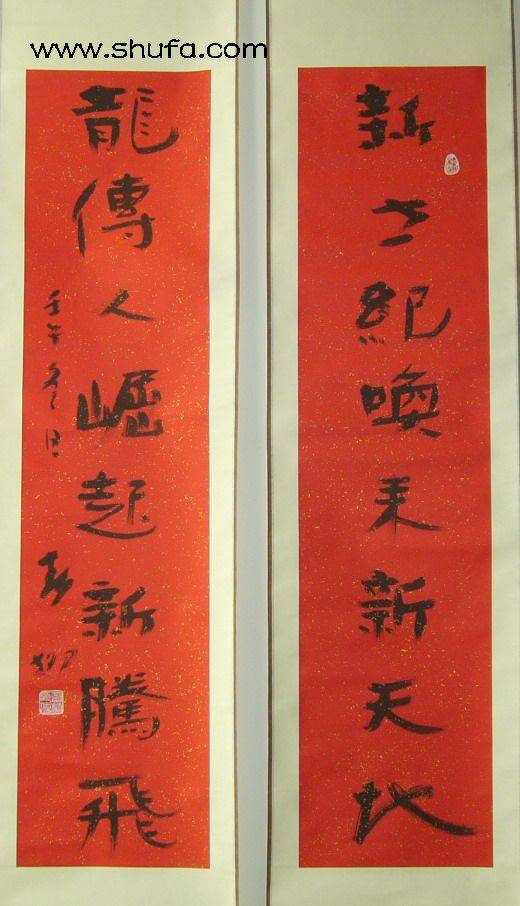 www.shufa.com
新世紀喚来新天地
龍傳人崛起新騰飛
壬午冬月